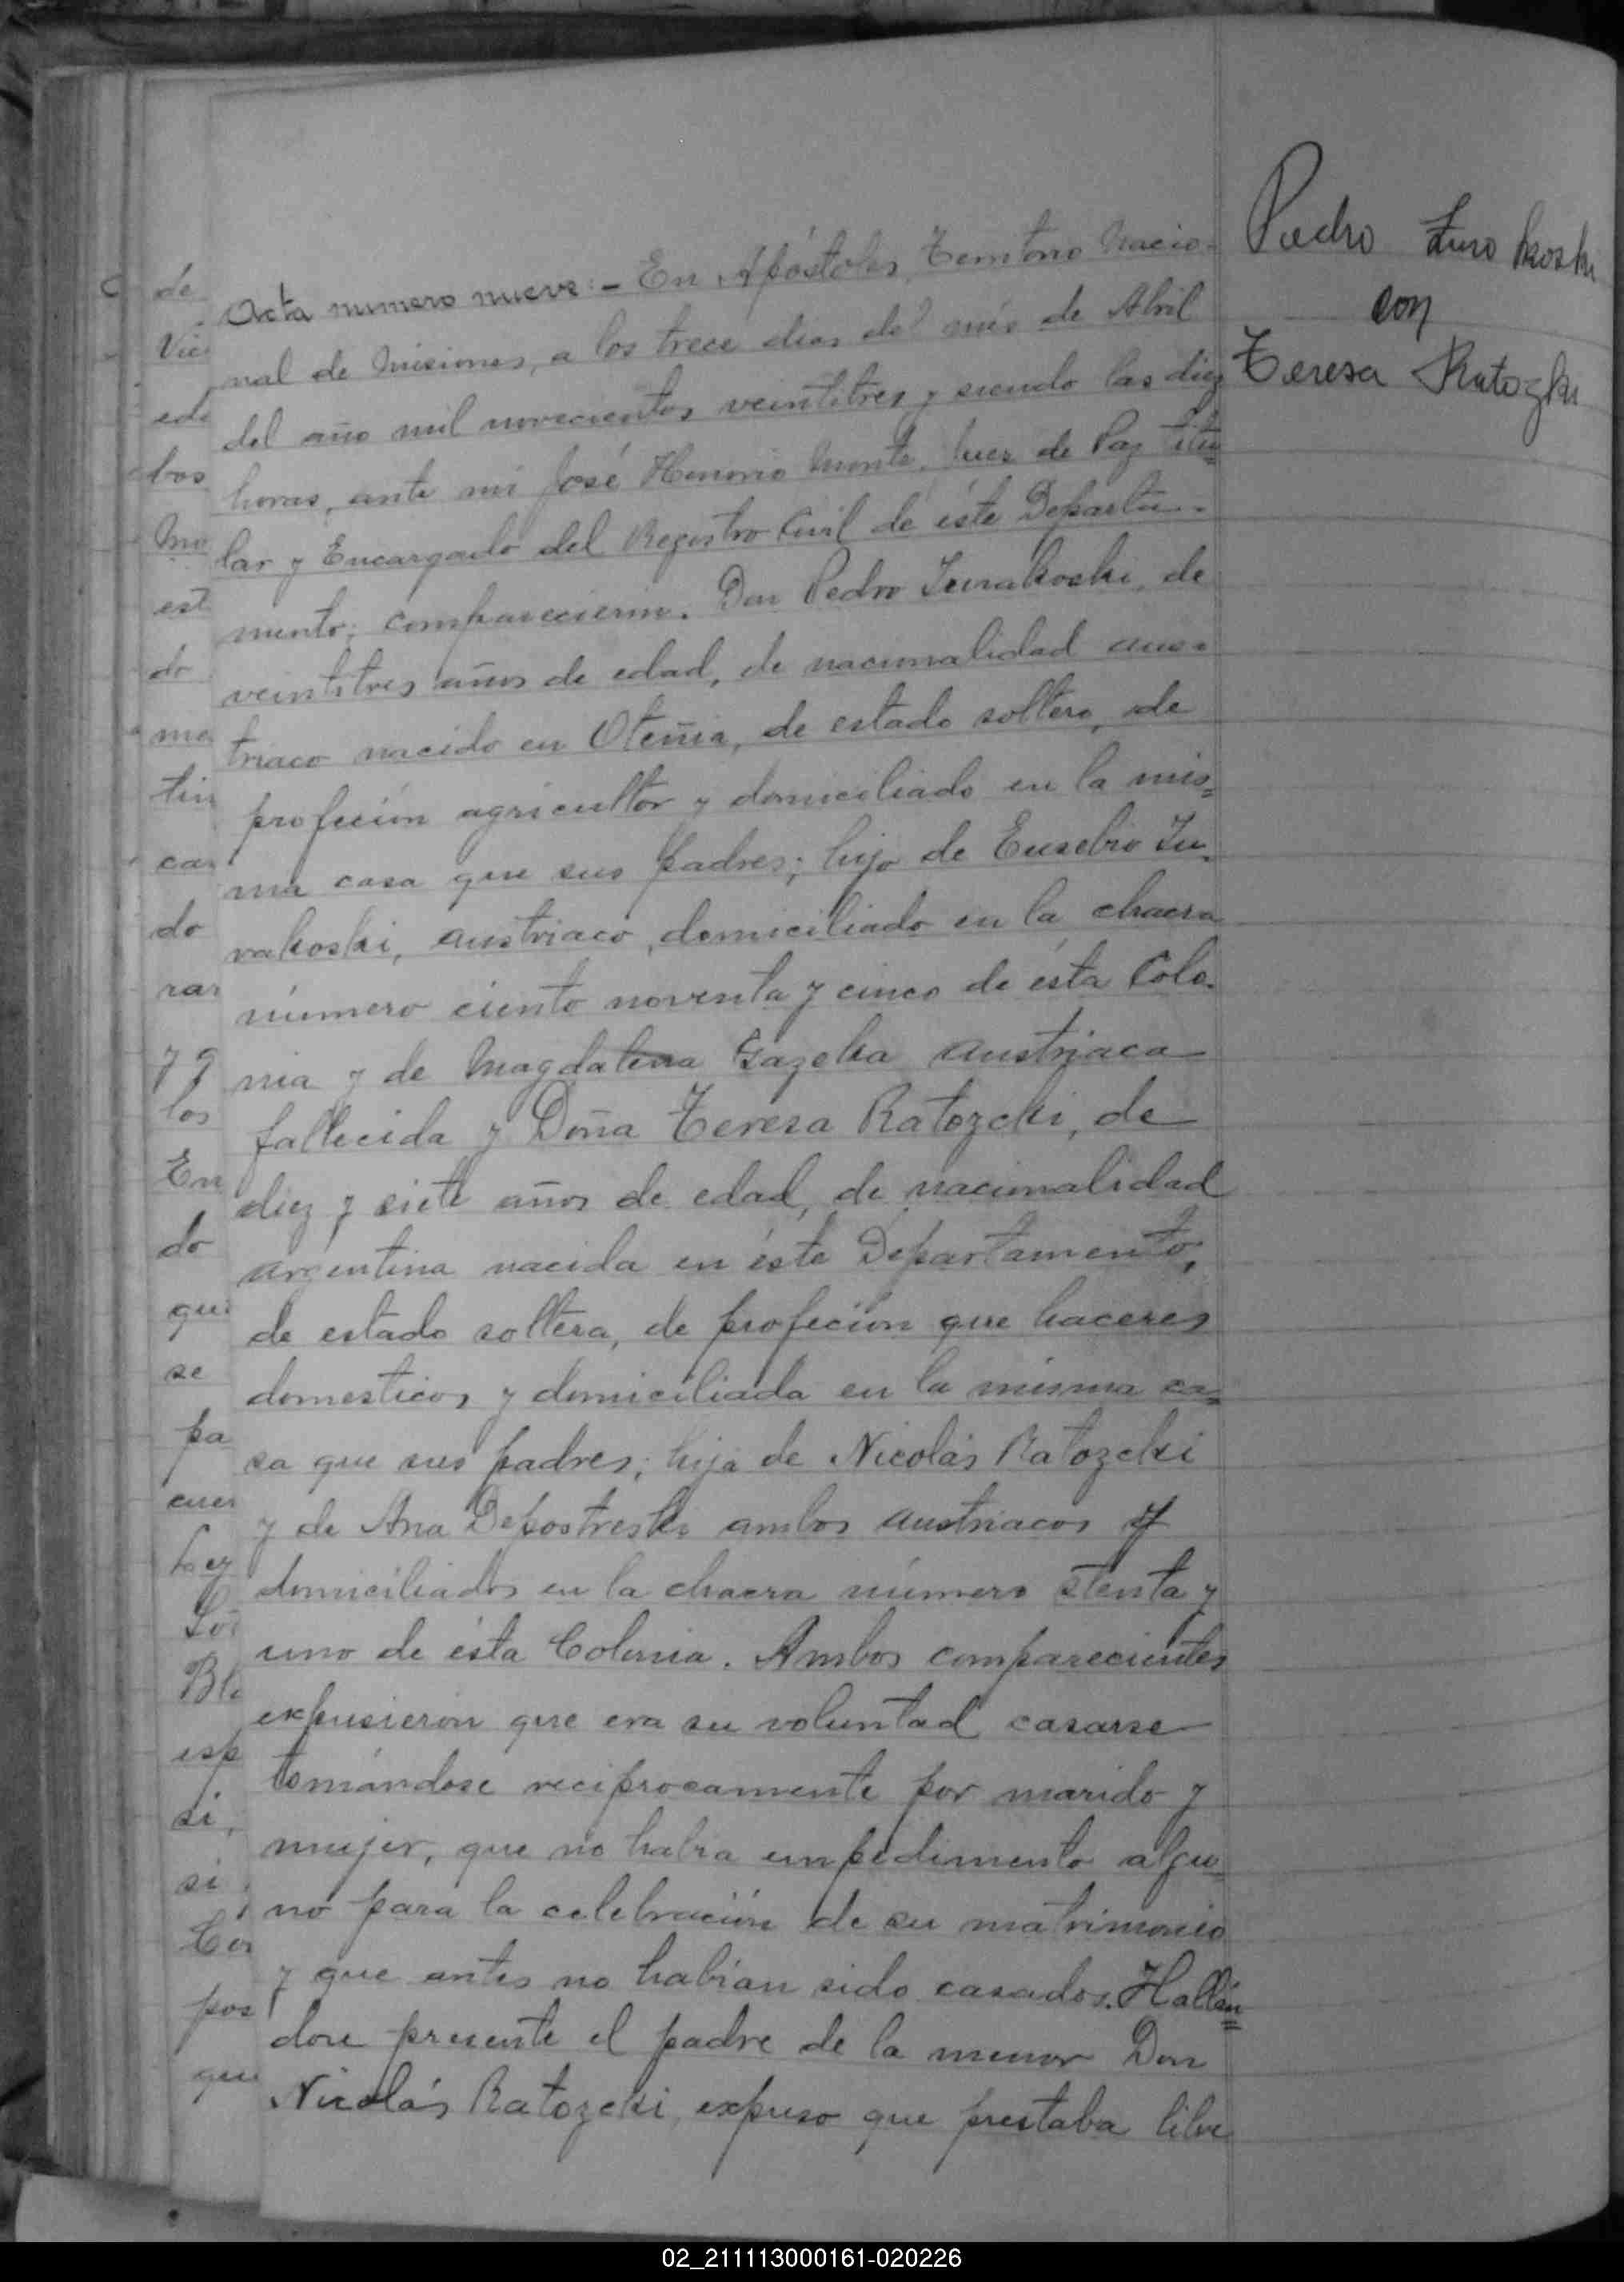 Pedro Zurokoski
con
Teresa Ratozki
Acta numero nueve:- En Apóstoles, Territorio Nacio-
nal de Misiones, a los trece dias del més de Abril
del año mil novecientos veintitres y siendo las diez
horas, ante mi José Honorio Monte, Juez de Paz titu=
lar y Encargado del Registro Civil de éste Departa-
mento; comparecieron. Don Pedro Zurakoski, de
veintitres años de edad, de nacionalidad aus-
triaco nacido en Oteñia, de estado soltero, de
profeción agricultor y domiciliado en la mis=
ma casa que sus padres; hijo de Eusebio Zu-
rakoski, austriaco, domiciliado en la chacra
número ciento noventa y cinco de ésta Colo-
nia y de Magdalena Gazeka austriaca
fallecida y Doña Teresa Ratozcki, de
diez y siete años de edad, de nacionalidad
argentina nacida en éste Departamento,
de estado soltera, de profeción que haceres
domesticos y domiciliada en la misma ca=
sa que sus padres; hija de Nicolás Ratozcki
y de Ana Depostreski ambos austriacos y
domiciliados en la chacra número stenta y
uno de ésta Colonia. Ambos comparecientes
expusieron que era su voluntad casarse
tomándose reciprocamente por marido y
mujer, que no habia empedimento algu=
no para la celebración de su matrimonio
y que antes no habian sido casados. Hallán=
dose presente el padre de la menor Don
Nicolás Ratozcki, expuso que prestaba libre
de
Vie
edo
bos
Mo
est
do
ma
tin
cas
do
rar
y q
los
En
do
que
se
pa
cuer
Ley
Bl
esp
si,
si
Cer
pos
que
02_211113000161-020226